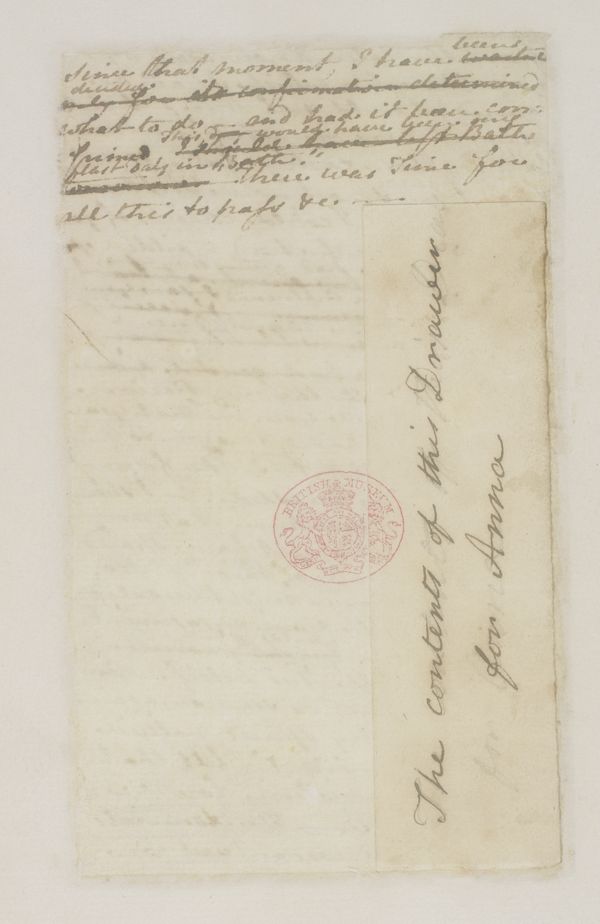 been
since that moment, I have waited
decided
only for its confirmation determined
what to do — and had it been con:
This would have been my
firmed I should have left Bath
last day in Bath."
There was time for
all this to pass &c. ——
The contents of this Drawer
for Anna
BRITISH MUSEUM